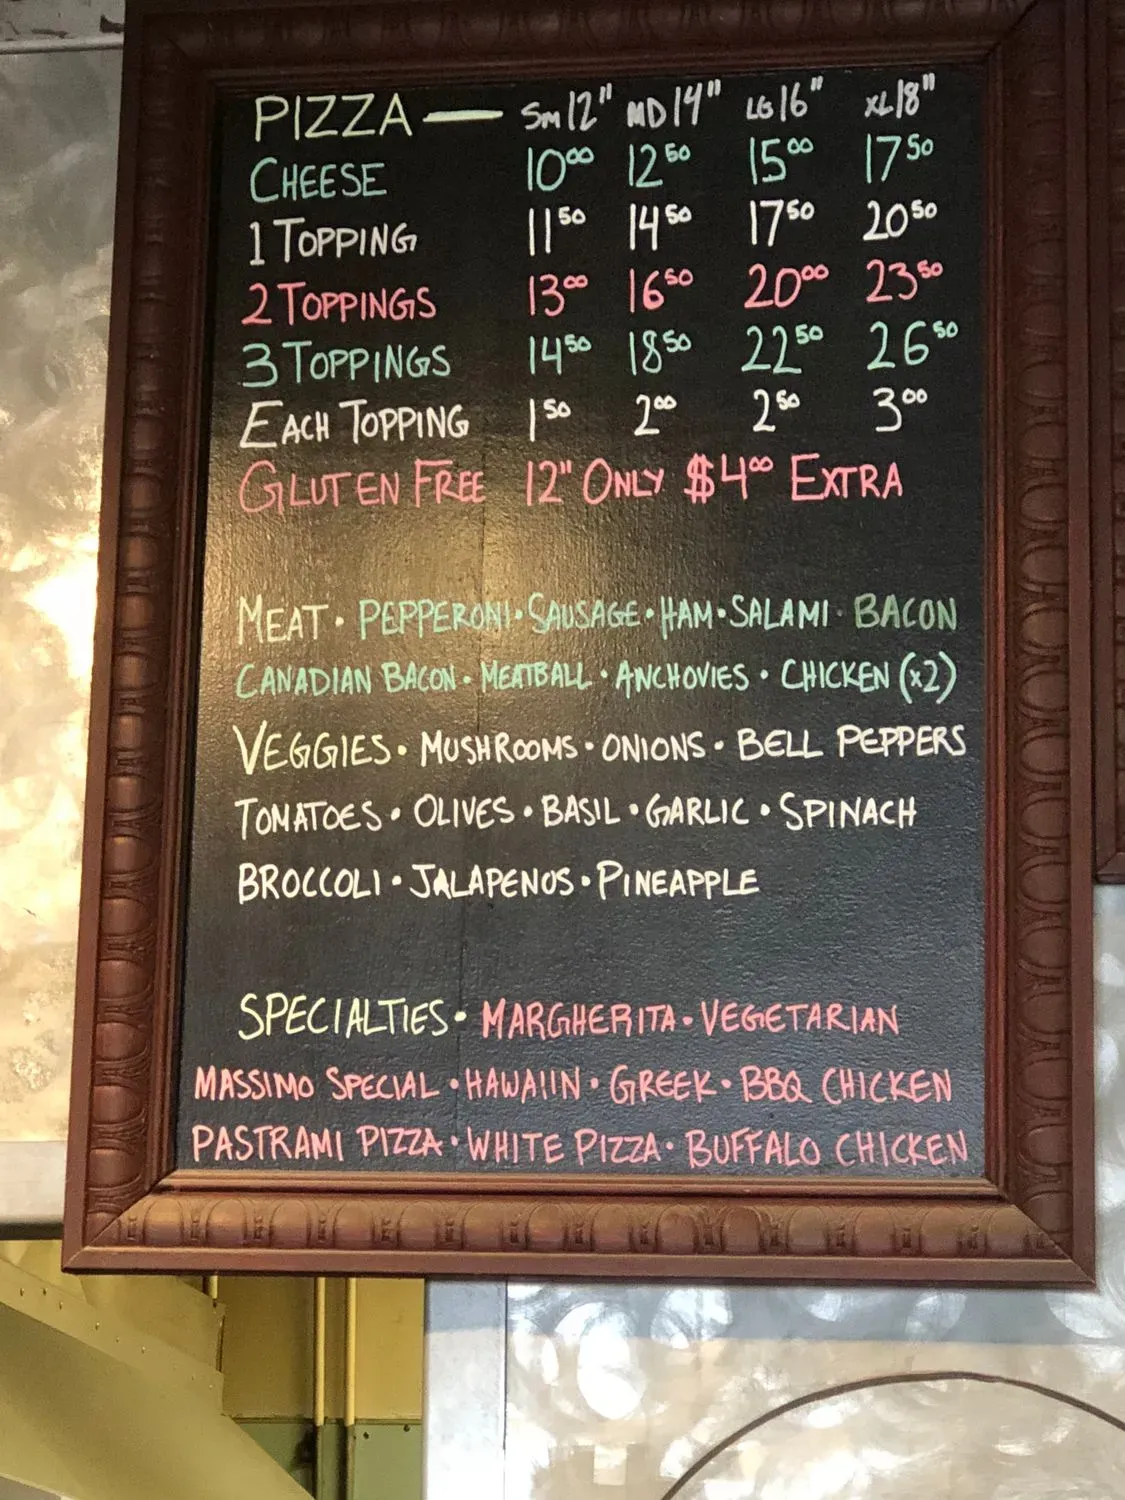 PIZZA — Sm 12" MD 14" LG 16" XL 18"
CHEESE 10⁰⁰ 12⁵⁰ 15⁰⁰ 17⁵⁰
1 TOPPING 11⁵⁰ 14⁵⁰ 17⁵⁰ 20⁵⁰
2 TOPPINGS 13⁰⁰ 16⁵⁰ 20⁰⁰ 23⁵⁰
3 TOPPINGS 14⁵⁰ 18⁵⁰ 22⁵⁰ 26⁵⁰
EACH TOPPING 1⁵⁰ 2⁰⁰ 2⁵⁰ 3⁰⁰
GLUTEN FREE 12" ONLY $4⁰⁰ EXTRA
MEAT • PEPPERONI • SAUSAGE • HAM • SALAMI • BACON
CANADIAN BACON • MEATBALL • ANCHOVIES • CHICKEN (x2)
VEGGIES • MUSHROOMS • ONIONS • BELL PEPPERS
TOMATOES • OLIVES • BASIL • GARLIC • SPINACH
BROCCOLI • JALAPENOS • PINEAPPLE
SPECIALTIES • MARGHERITA • VEGETARIAN
MASSIMO SPECIAL • HAWAIIN • GREEK • BBQ CHICKEN
PASTRAMI PIZZA • WHITE PIZZA • BUFFALO CHICKEN